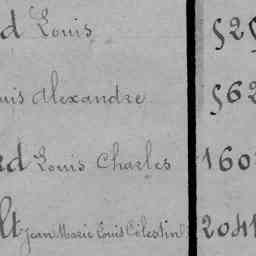 d Louis 529
uis Alexandre 562
rd Louis Charles 160
lt Jean Marie Louis Célestin 2041